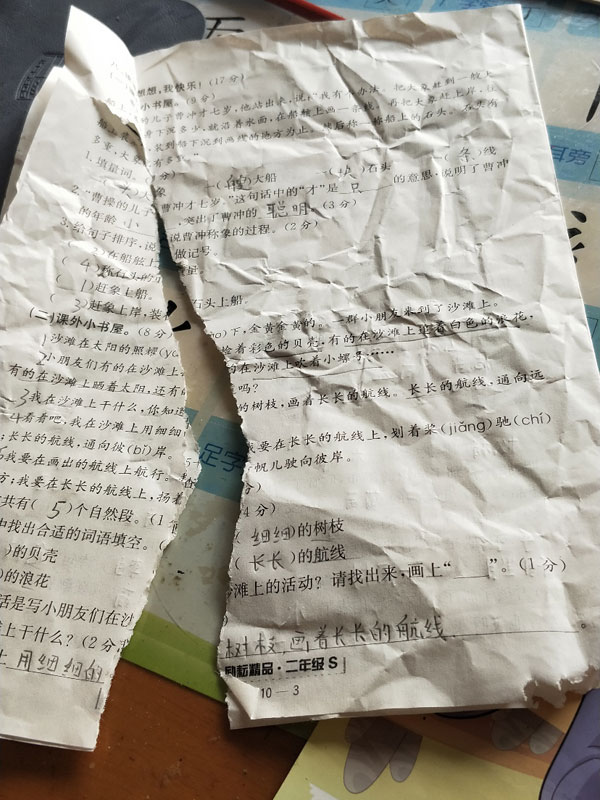 想想,我快乐!(17分)
小书屋。(9分)
的儿子曹冲才七岁,他站出来,说:“我有个办法。把大象赶到一艘大
下沉多少,就沿着水面,在船舷上画一条线。再把大象赶上岸,往
装到船下沉到画线的地方为止。然后称一称船上的石头。石头有
多重,大 有多重。”
1.填量词。 分)
象 一(艘)大船 一( )石头 一(条)线
2.“曹操的儿子 曹冲才七岁。”这句话中的“才”是 只 的意思,说明了曹冲
的年龄 小 ,突出了曹冲的 聪明。(3分)
3.给句子排序,说 说曹冲称象的过程。(2分)
( )在船舷上 做记号。
(4)称石头的 重量。
(1)赶象上船。
(3)赶象上岸,装 石头上船。
(二)课外小书屋。(8分)
1沙滩在太阳的照耀 下,金黄金黄的。一群小朋友来到了沙滩上。
2小朋友们有的在沙滩 捡着彩色的贝壳,有的在沙滩上 着白色的浪花,
有的在沙滩上晒着太阳,还有 的在沙滩上吹着小螺号……
3我在沙滩上干什么,你知道 吗?
4看看吧,我在沙滩上用细细 的树枝,画着长长的航线。长长的航线,通向远
长长的航线,通向彼(bǐ)岸。
5我要在画出的航线上航行。 我要在长长的航线上,划着桨(jiǎng)驰(chí)
方;我要在长长的航线上,扬着 帆儿驶向彼岸。
共有(5)个自然段。(1 分)
中找出合适的词语填空。( 4分)
)的贝壳 (细细)的树枝
)的浪花 (长长)的航线
话是写小朋友们在沙 滩上的活动?请找出来,画上“____”。(1分)
上干什么?(2分)
上 用细细的 树枝 画着长长的航线 。
励耘精品·二年级 S
10—3